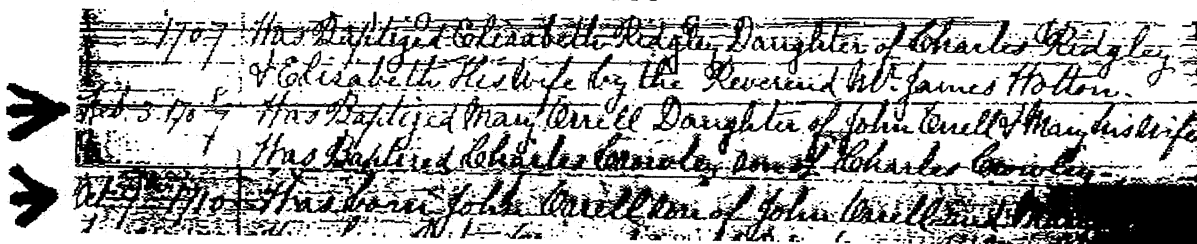 1707 Was Baptized Elisabeth Ridgley Daughter of Charles Ridgley
& Elisabeth His Wife by the Reverend Mr. James Hotton.
Feb. 3. 170 Was Baptized Mary Orrell Daughter of John Orrell & Mary his Wife
Was Baptized Charles son of Charles
1710 Was born John Orrell son of John Orrell and